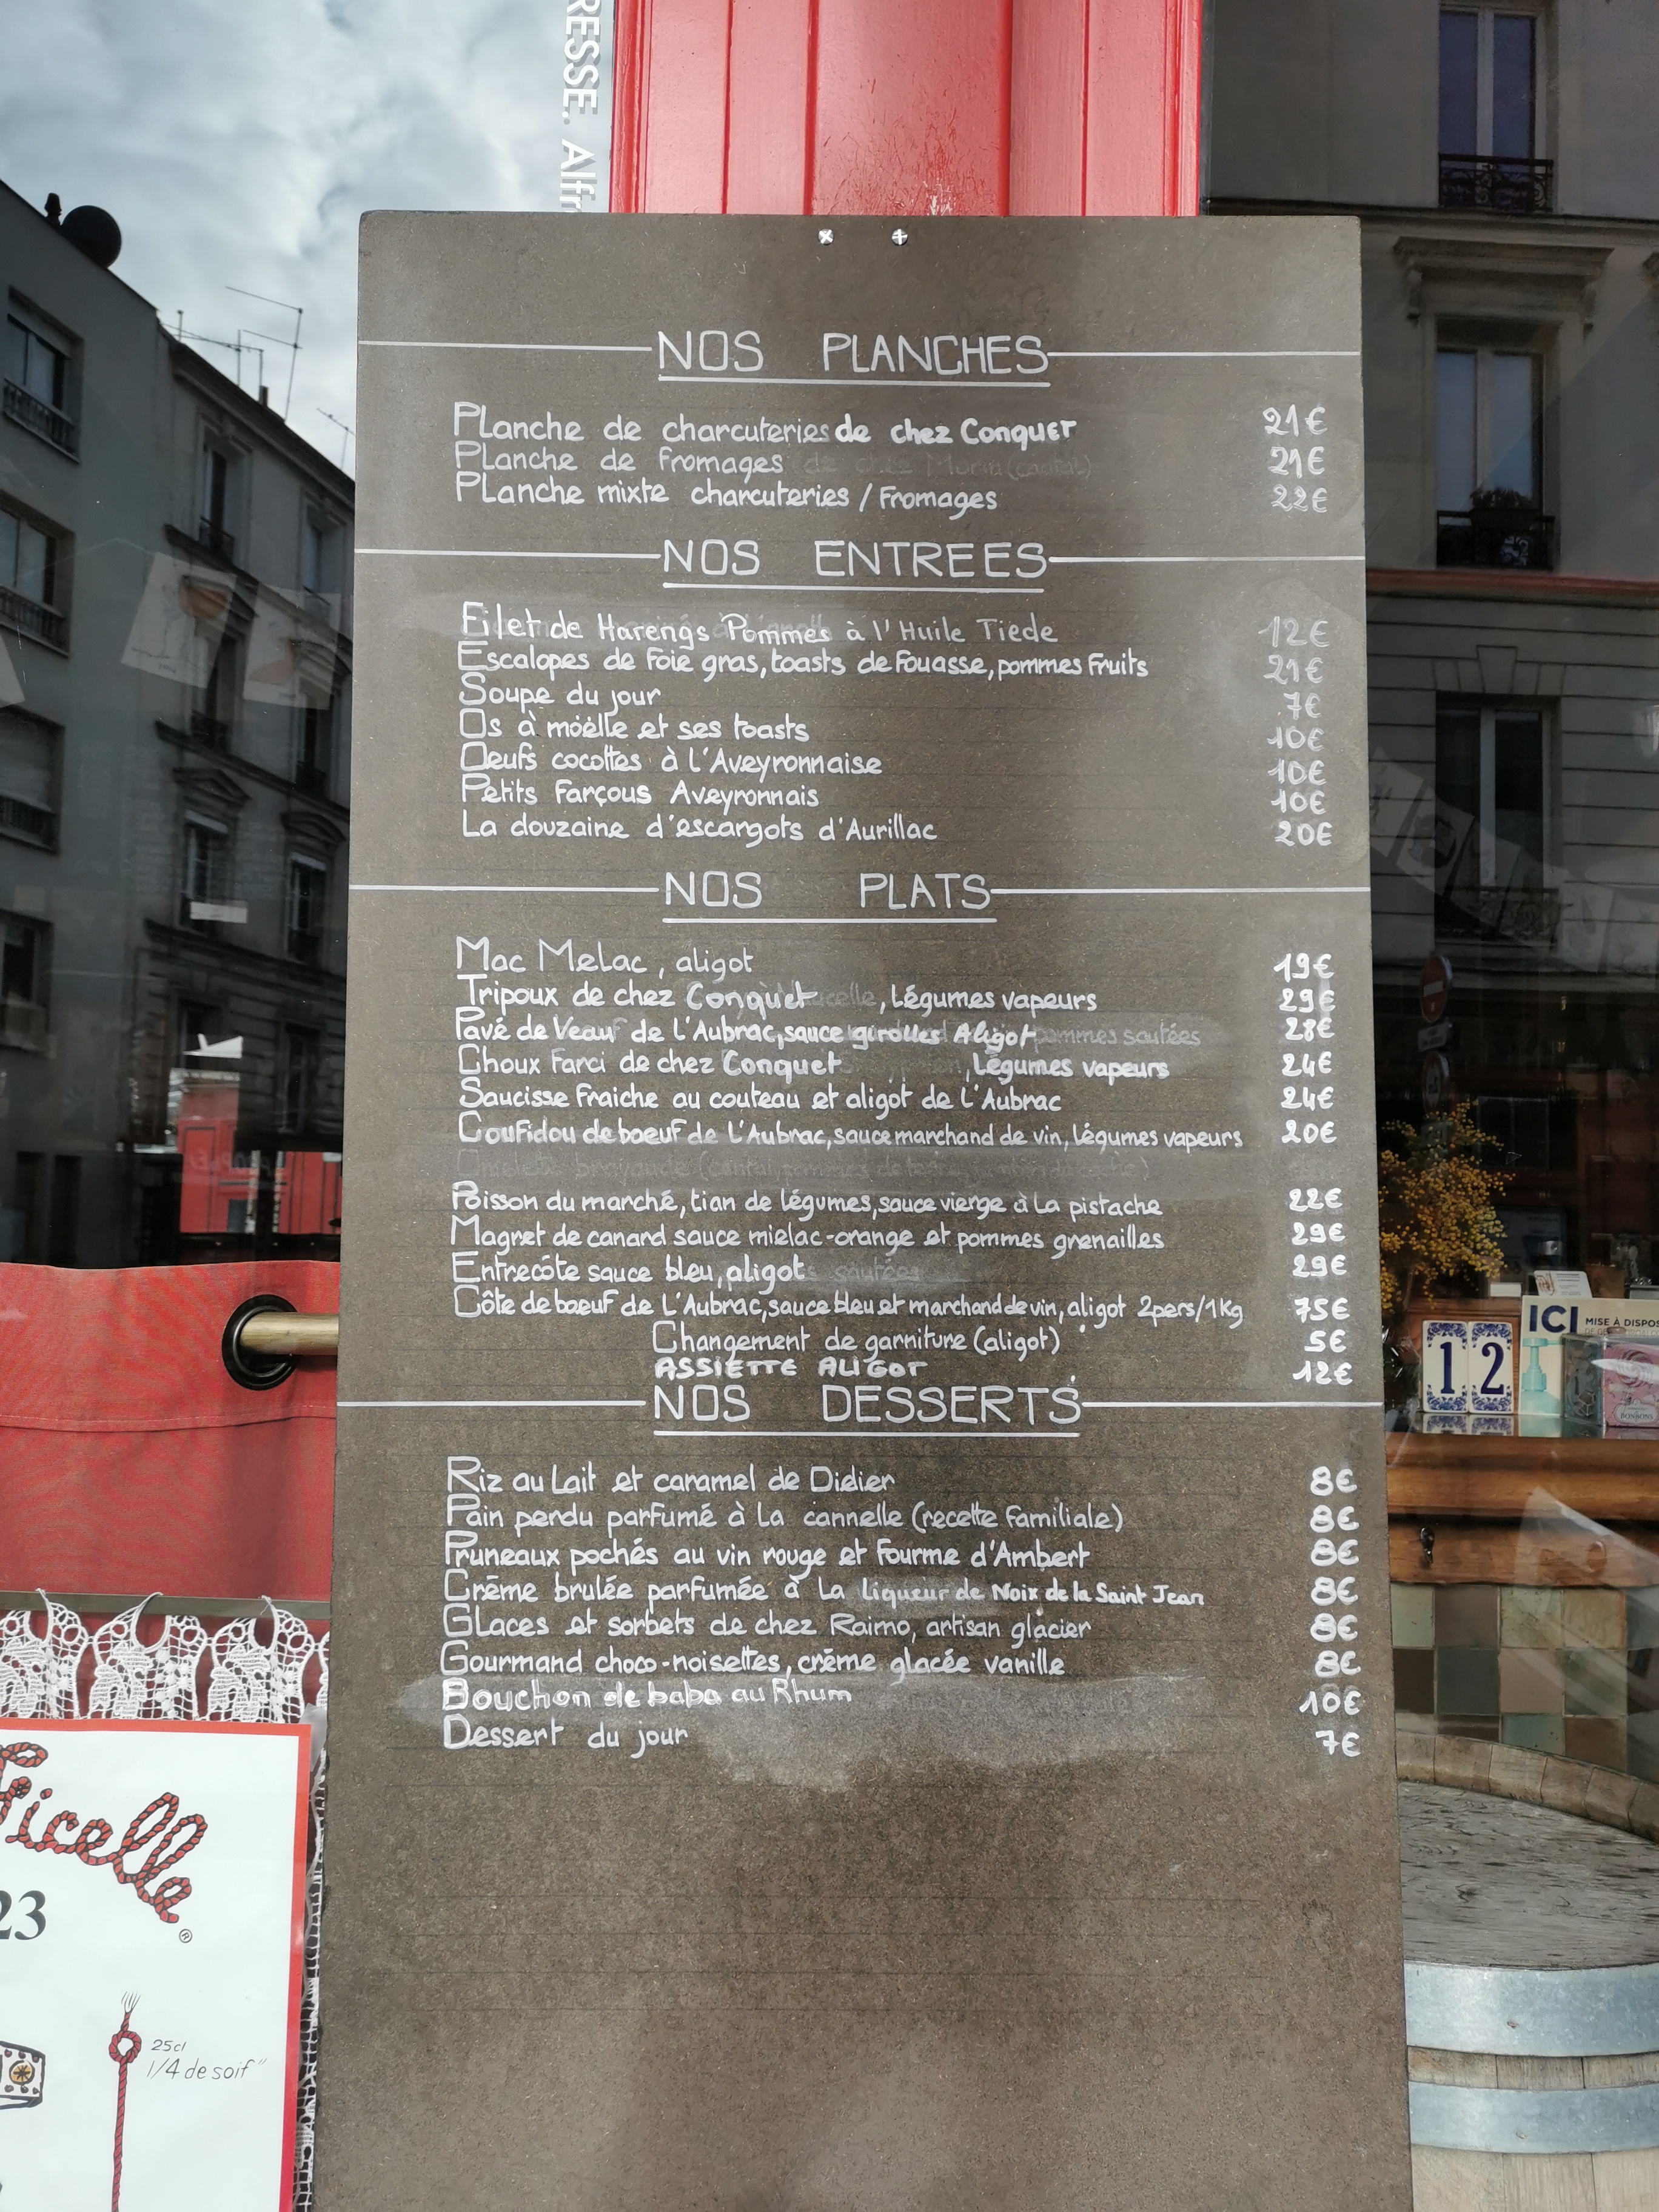 RESSE. Alfr
NOS PLANCHES
Planche de charcuteries de chez Conquet 21€
Planche de Fromages 21€
Planche mixte charcuteries / Fromages 22€
NOS ENTREES
Filet de Harengs Pommes à l'Huile Tiede 12€
Escalopes de Foie gras, toasts de Fouasse, pommes Fruits 21€
Soupe du jour 7€
Os à möëlle et ses toasts 10€
Oeufs cocottes à l'Aveyronnaise 10€
Petits Farçous Aveyronnais 10€
La douzaine d'escargots d'Aurillac 20€
NOS PLATS
Mac Melac, aligot 19€
Tripoux de chez Conquet, Légumes vapeurs 29€
Pavé de Veau de l'Aubrac, sauce girolles Aligot pommes sautées 28€
Choux Farci de chez Conquet, Légumes vapeurs 24€
Saucisse Fraiche au couteau et aligot de l'Aubrac 24€
Coufidou de boeuf de l'Aubrac, sauce marchand de vin, légumes vapeurs 20€
Poisson du marché, tian de légumes, sauce vierge à la pistache 22€
Magret de canard sauce mielac-orange et pommes grenailles 29€
Entrecôte sauce bleu, aligot sautées 29€
Côte de boeuf de l'Aubrac, sauce bleu et marchand de vin, aligot 2pers/1kg 75€
Changement de garniture (aligot) 5€
ASSIETTE ALIGOT 12€
NOS DESSERTS
Riz au Lait et caramel de Didier 8€
Pain perdu parfumé à la cannelle (recette Familiale) 8€
Pruneaux pochés au vin rouge et Fourme d'Ambert 8€
Crême brulée parfumée à la liqueur de Noix de la Saint Jean 8€
Glaces et sorbets de chez Raimo, artisan glacier 8€
Gourmand choco-noisettes, crême glacée vanille 8€
Bouchon de baba au Rhum 10€
Dessert du jour 7€
ICI MISE À DISPOS
12
BONBONS
Ficelle
®
23
25cl
1/4 de soif"